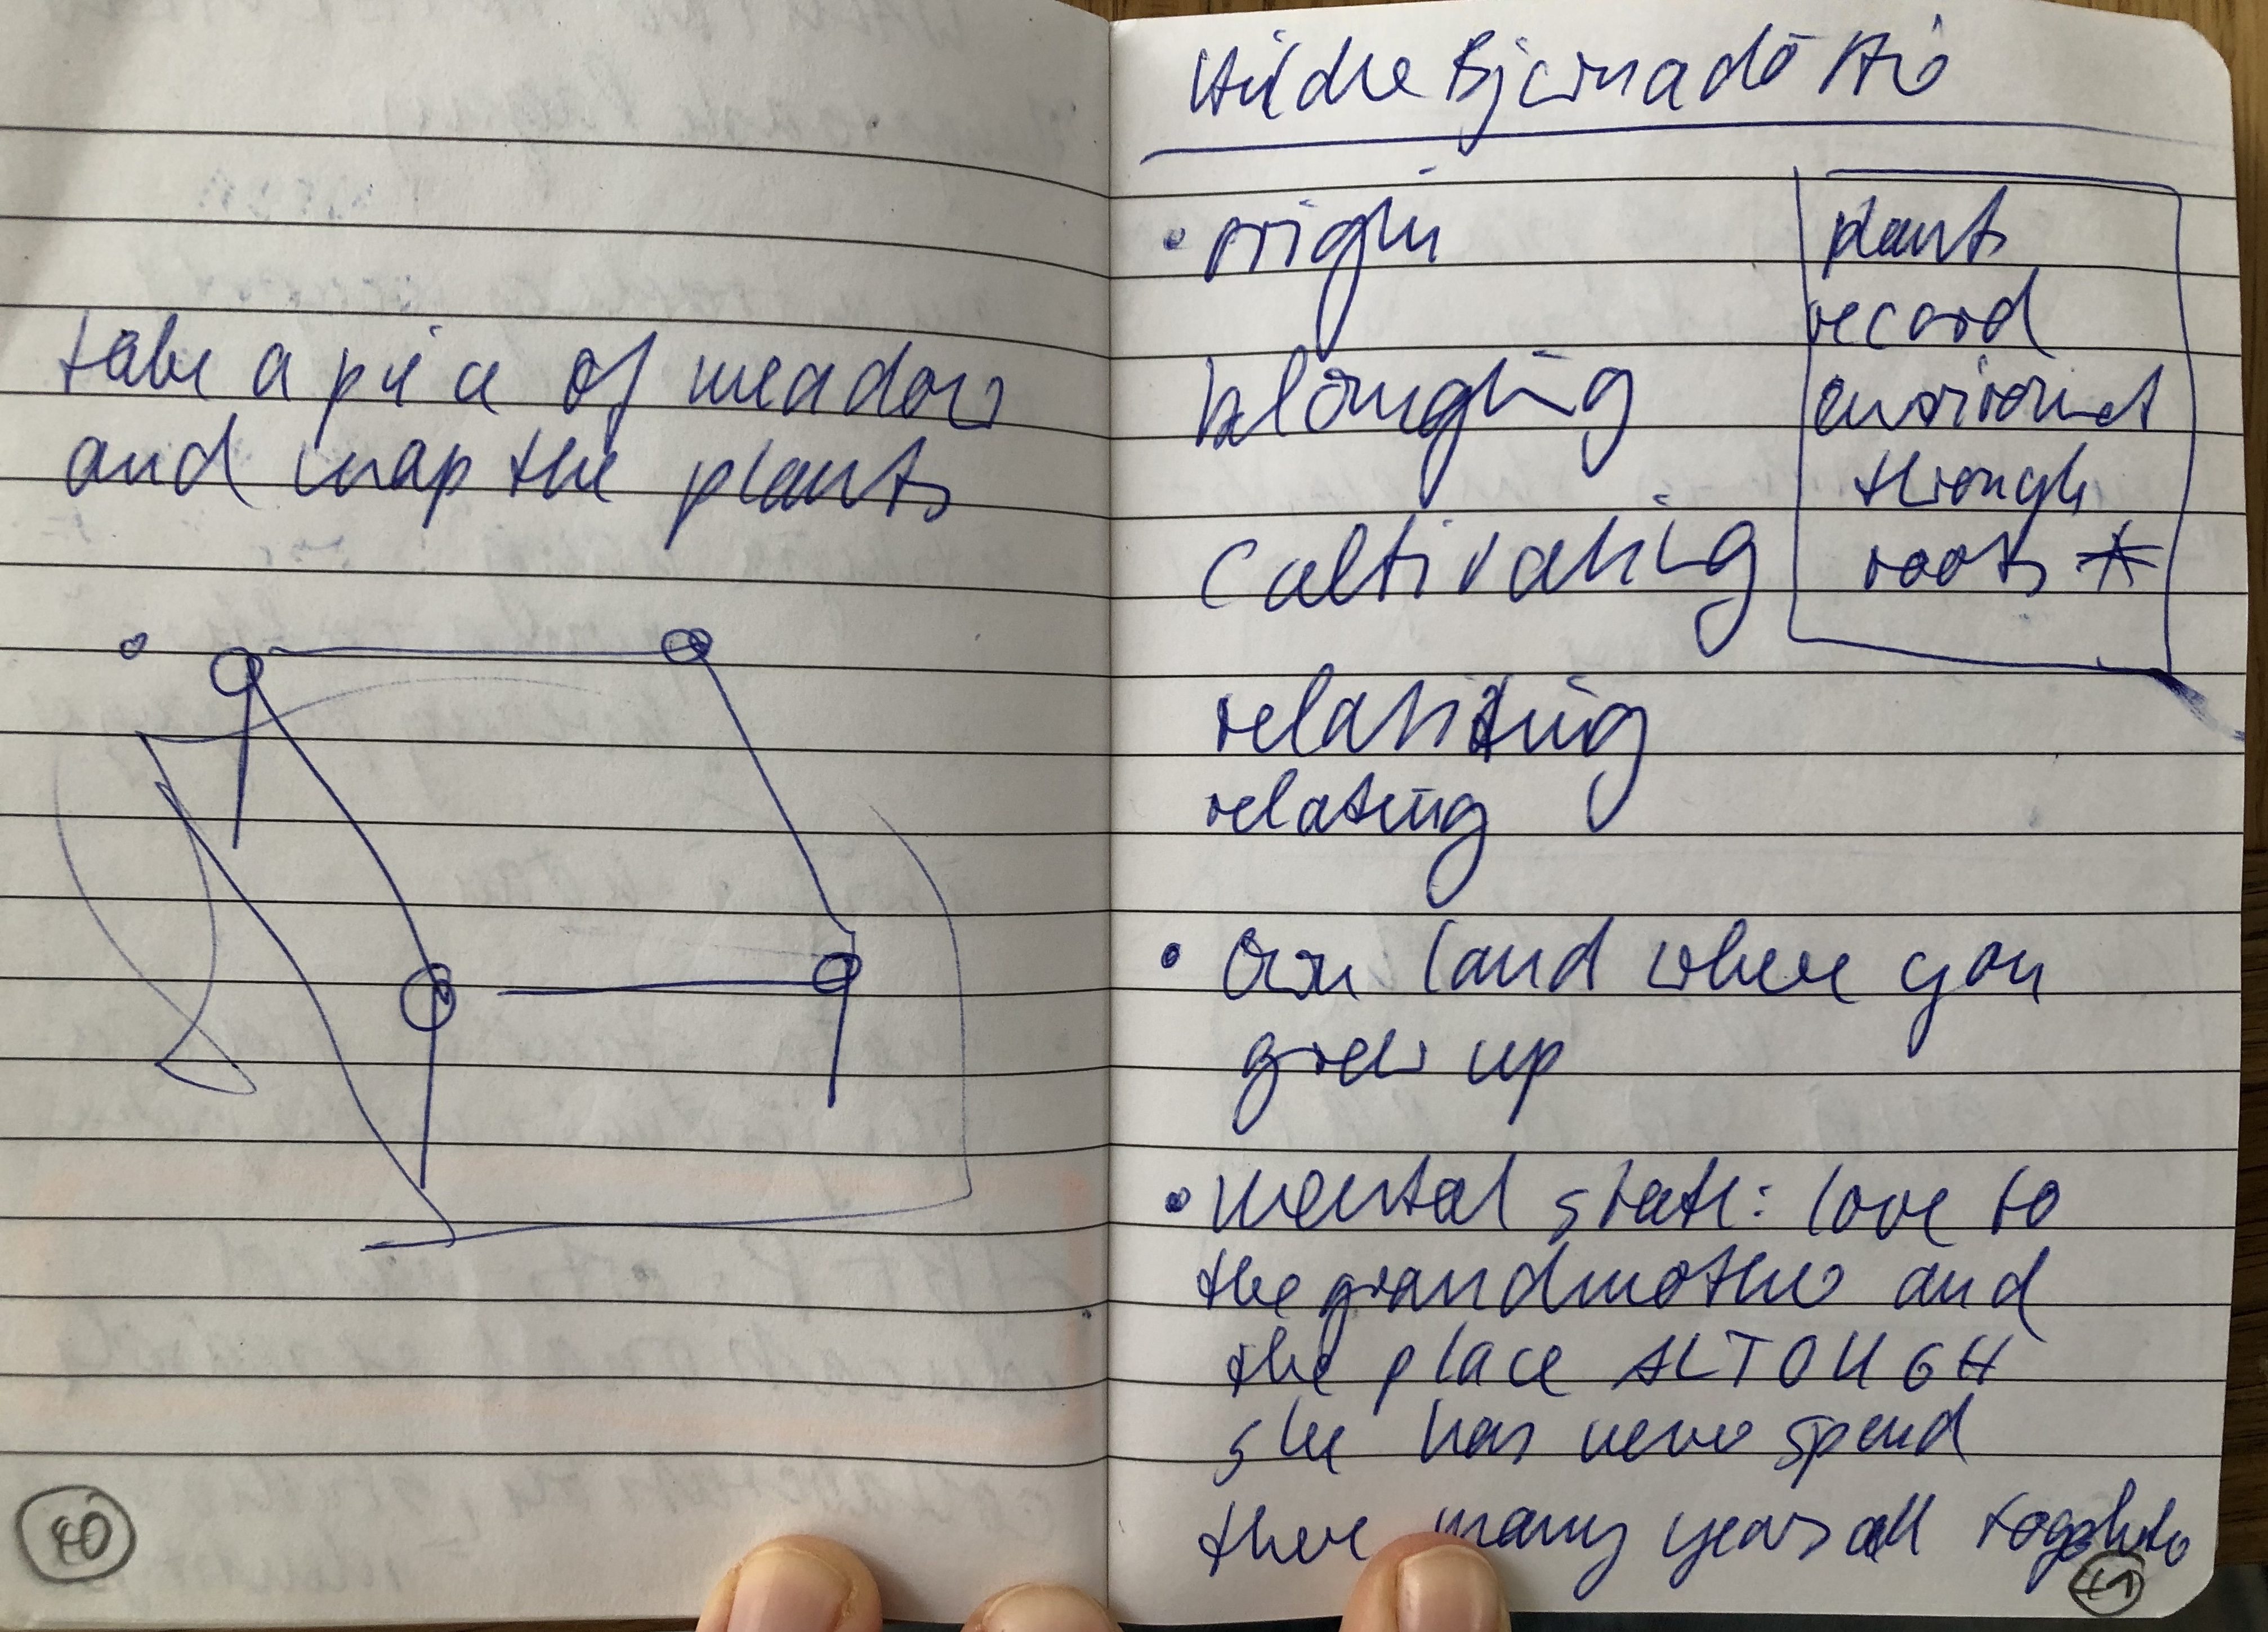 take a piece of meadow
and map the plants
40
Hildre Bjcirnadóttir
• origin
belonging
cultivating
relating
relating
plants
record
environment
through
roots *
• Own land where you
grew up
• mental state: love to
the grandmother and
the place ALTOUGH
she has never spend
there many years all together
41